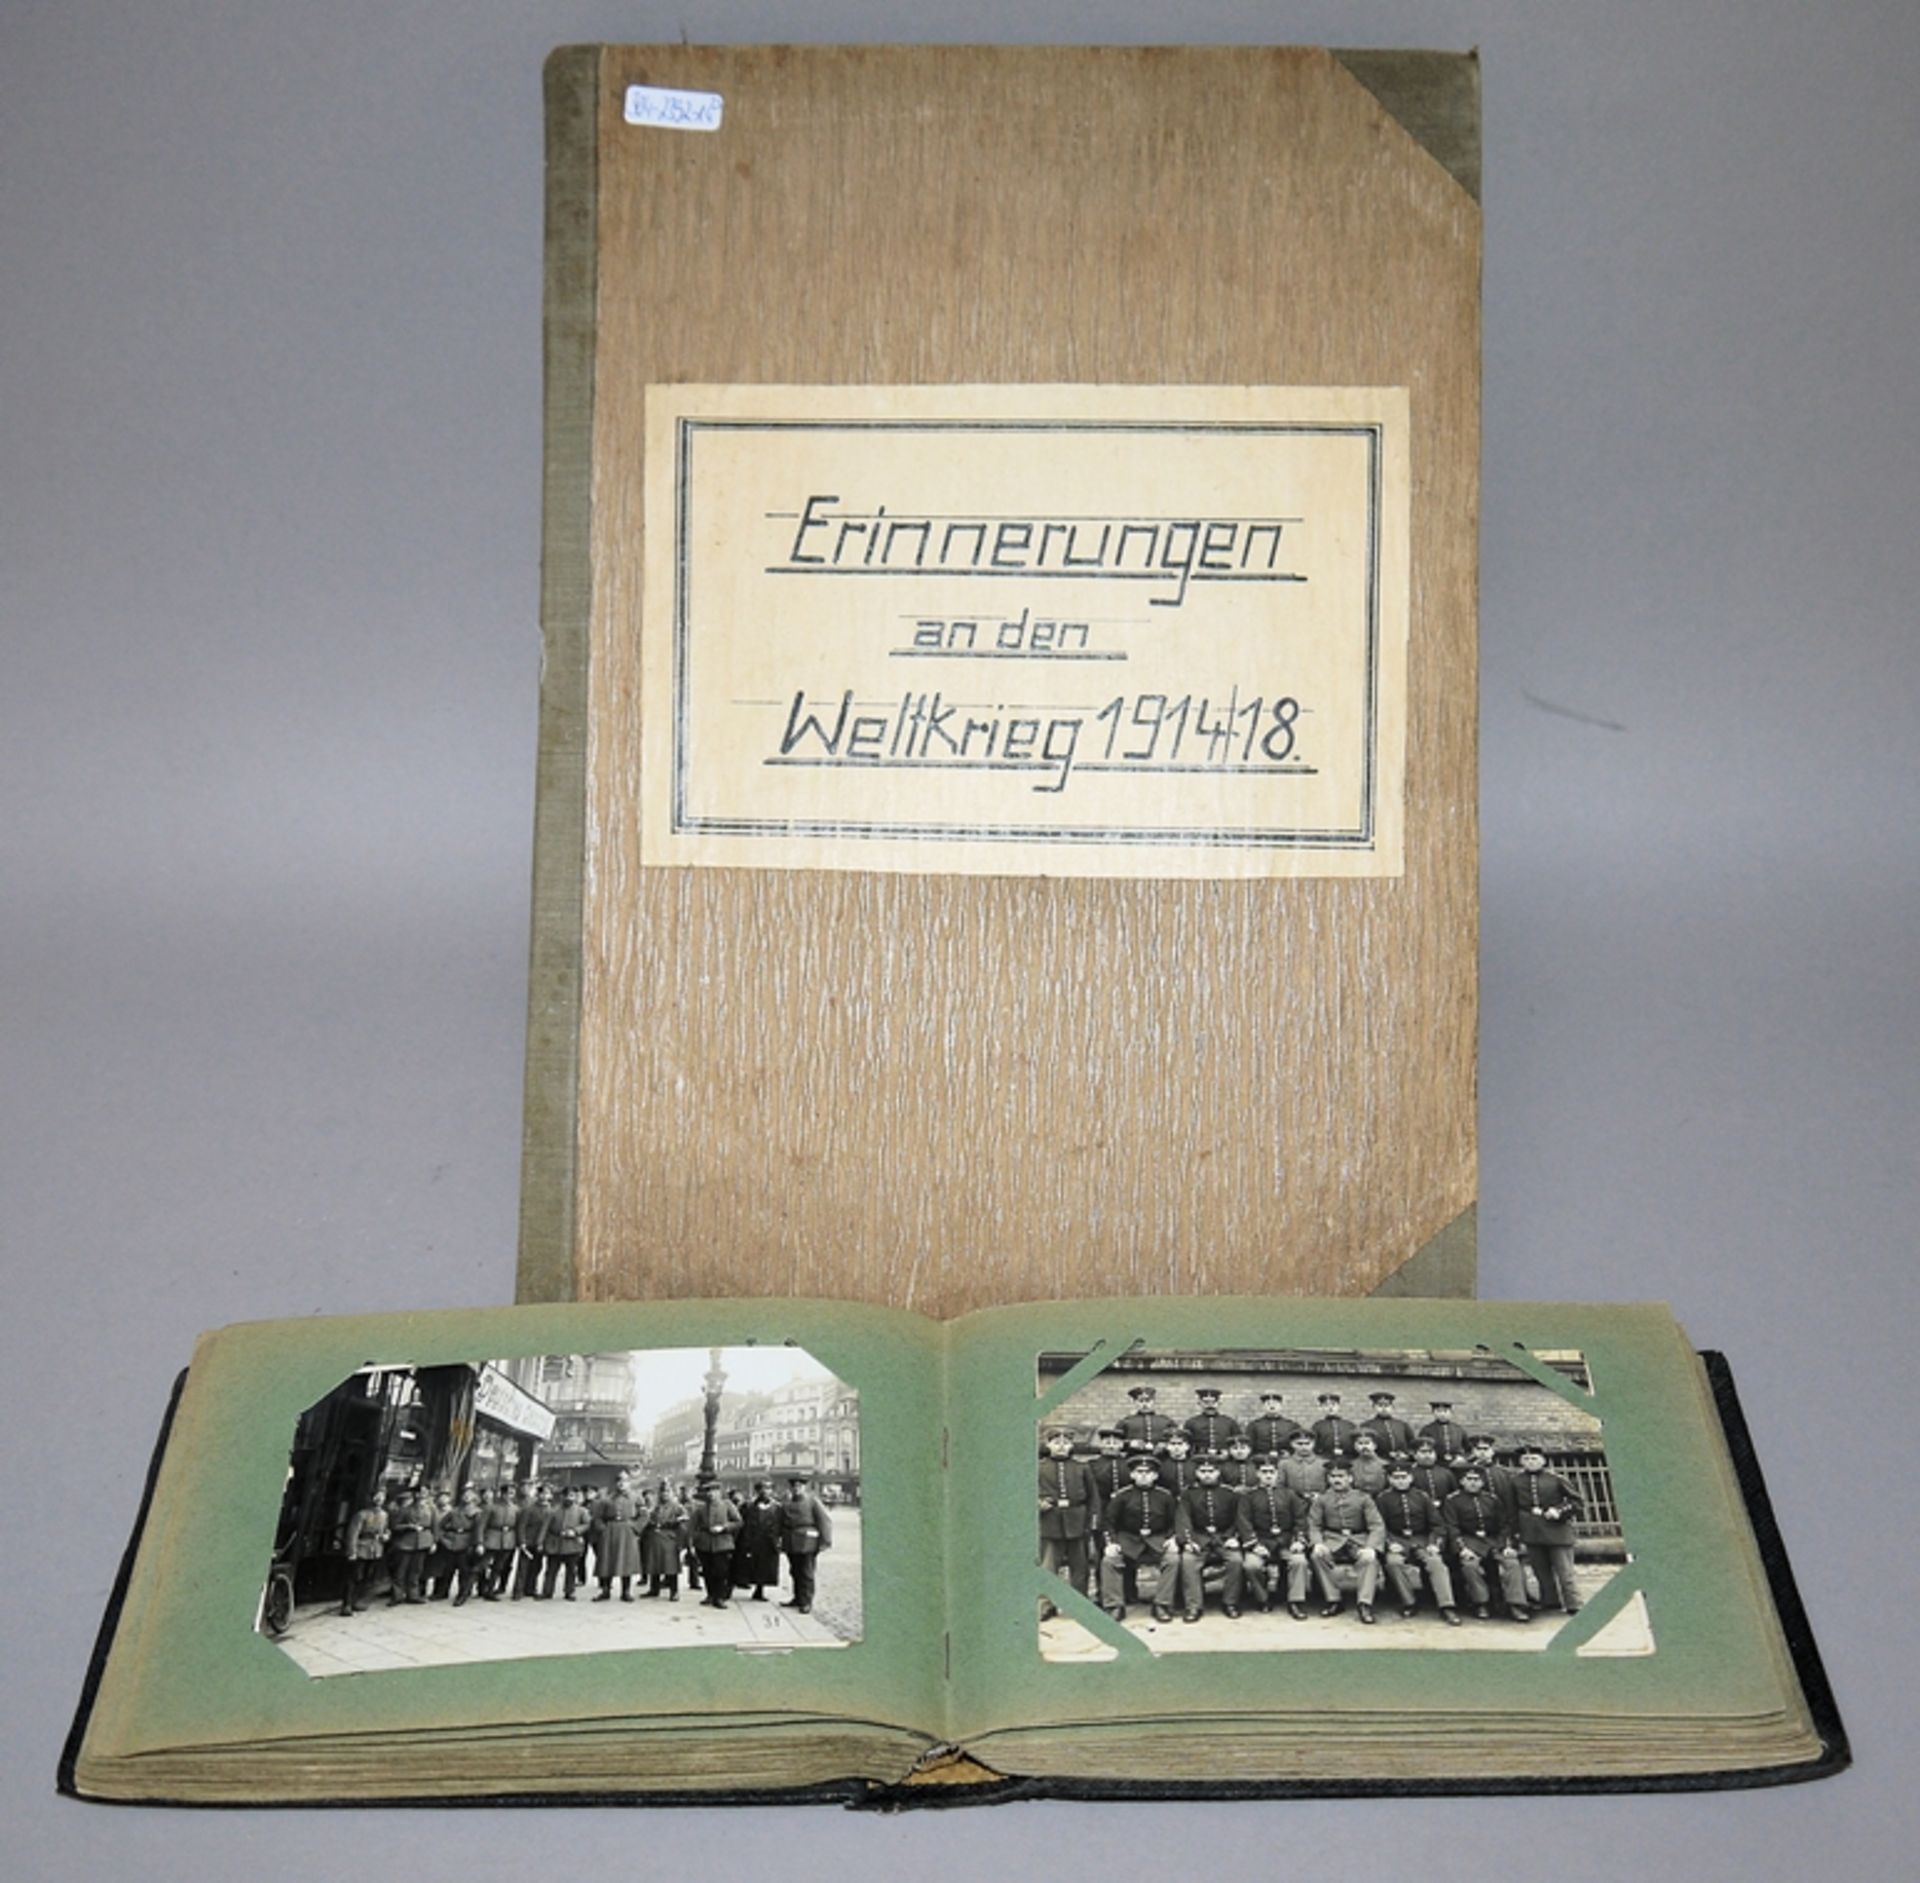 Erinnerungen
an den
Weltkrieg 1914/18.
31